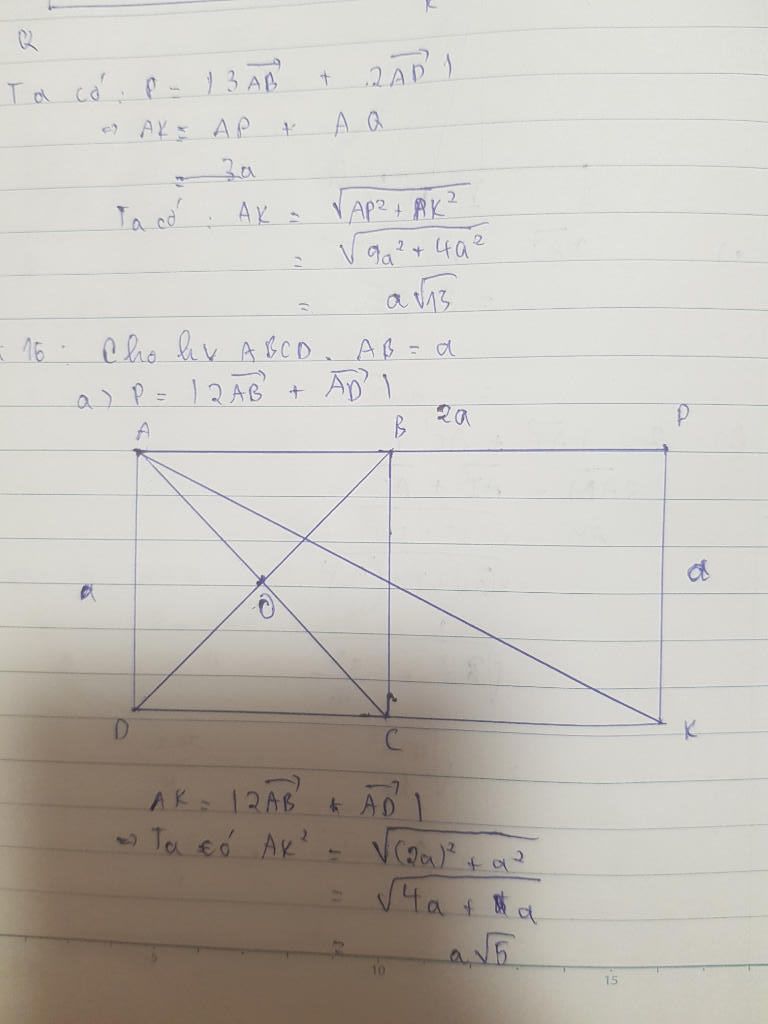 K
Q
Ta có: P = |3\overrightarrow{AB} + 2\overrightarrow{AD}|
⇔ AK = AP + AQ
= 3a
Ta có: AK = √(AP² + AK²)
= √(9a² + 4a²)
= a√13
: 16: Cho hv ABCD. AB = a
a) P = |2\overrightarrow{AB} + \overrightarrow{AD}|
A B 2a P
a O a
D C K
AK = |2\overrightarrow{AB} + \overrightarrow{AD}|
⇒ Ta có AK² = √((2a)² + a²)
= √(4a + a)
= a√5
5 10 15